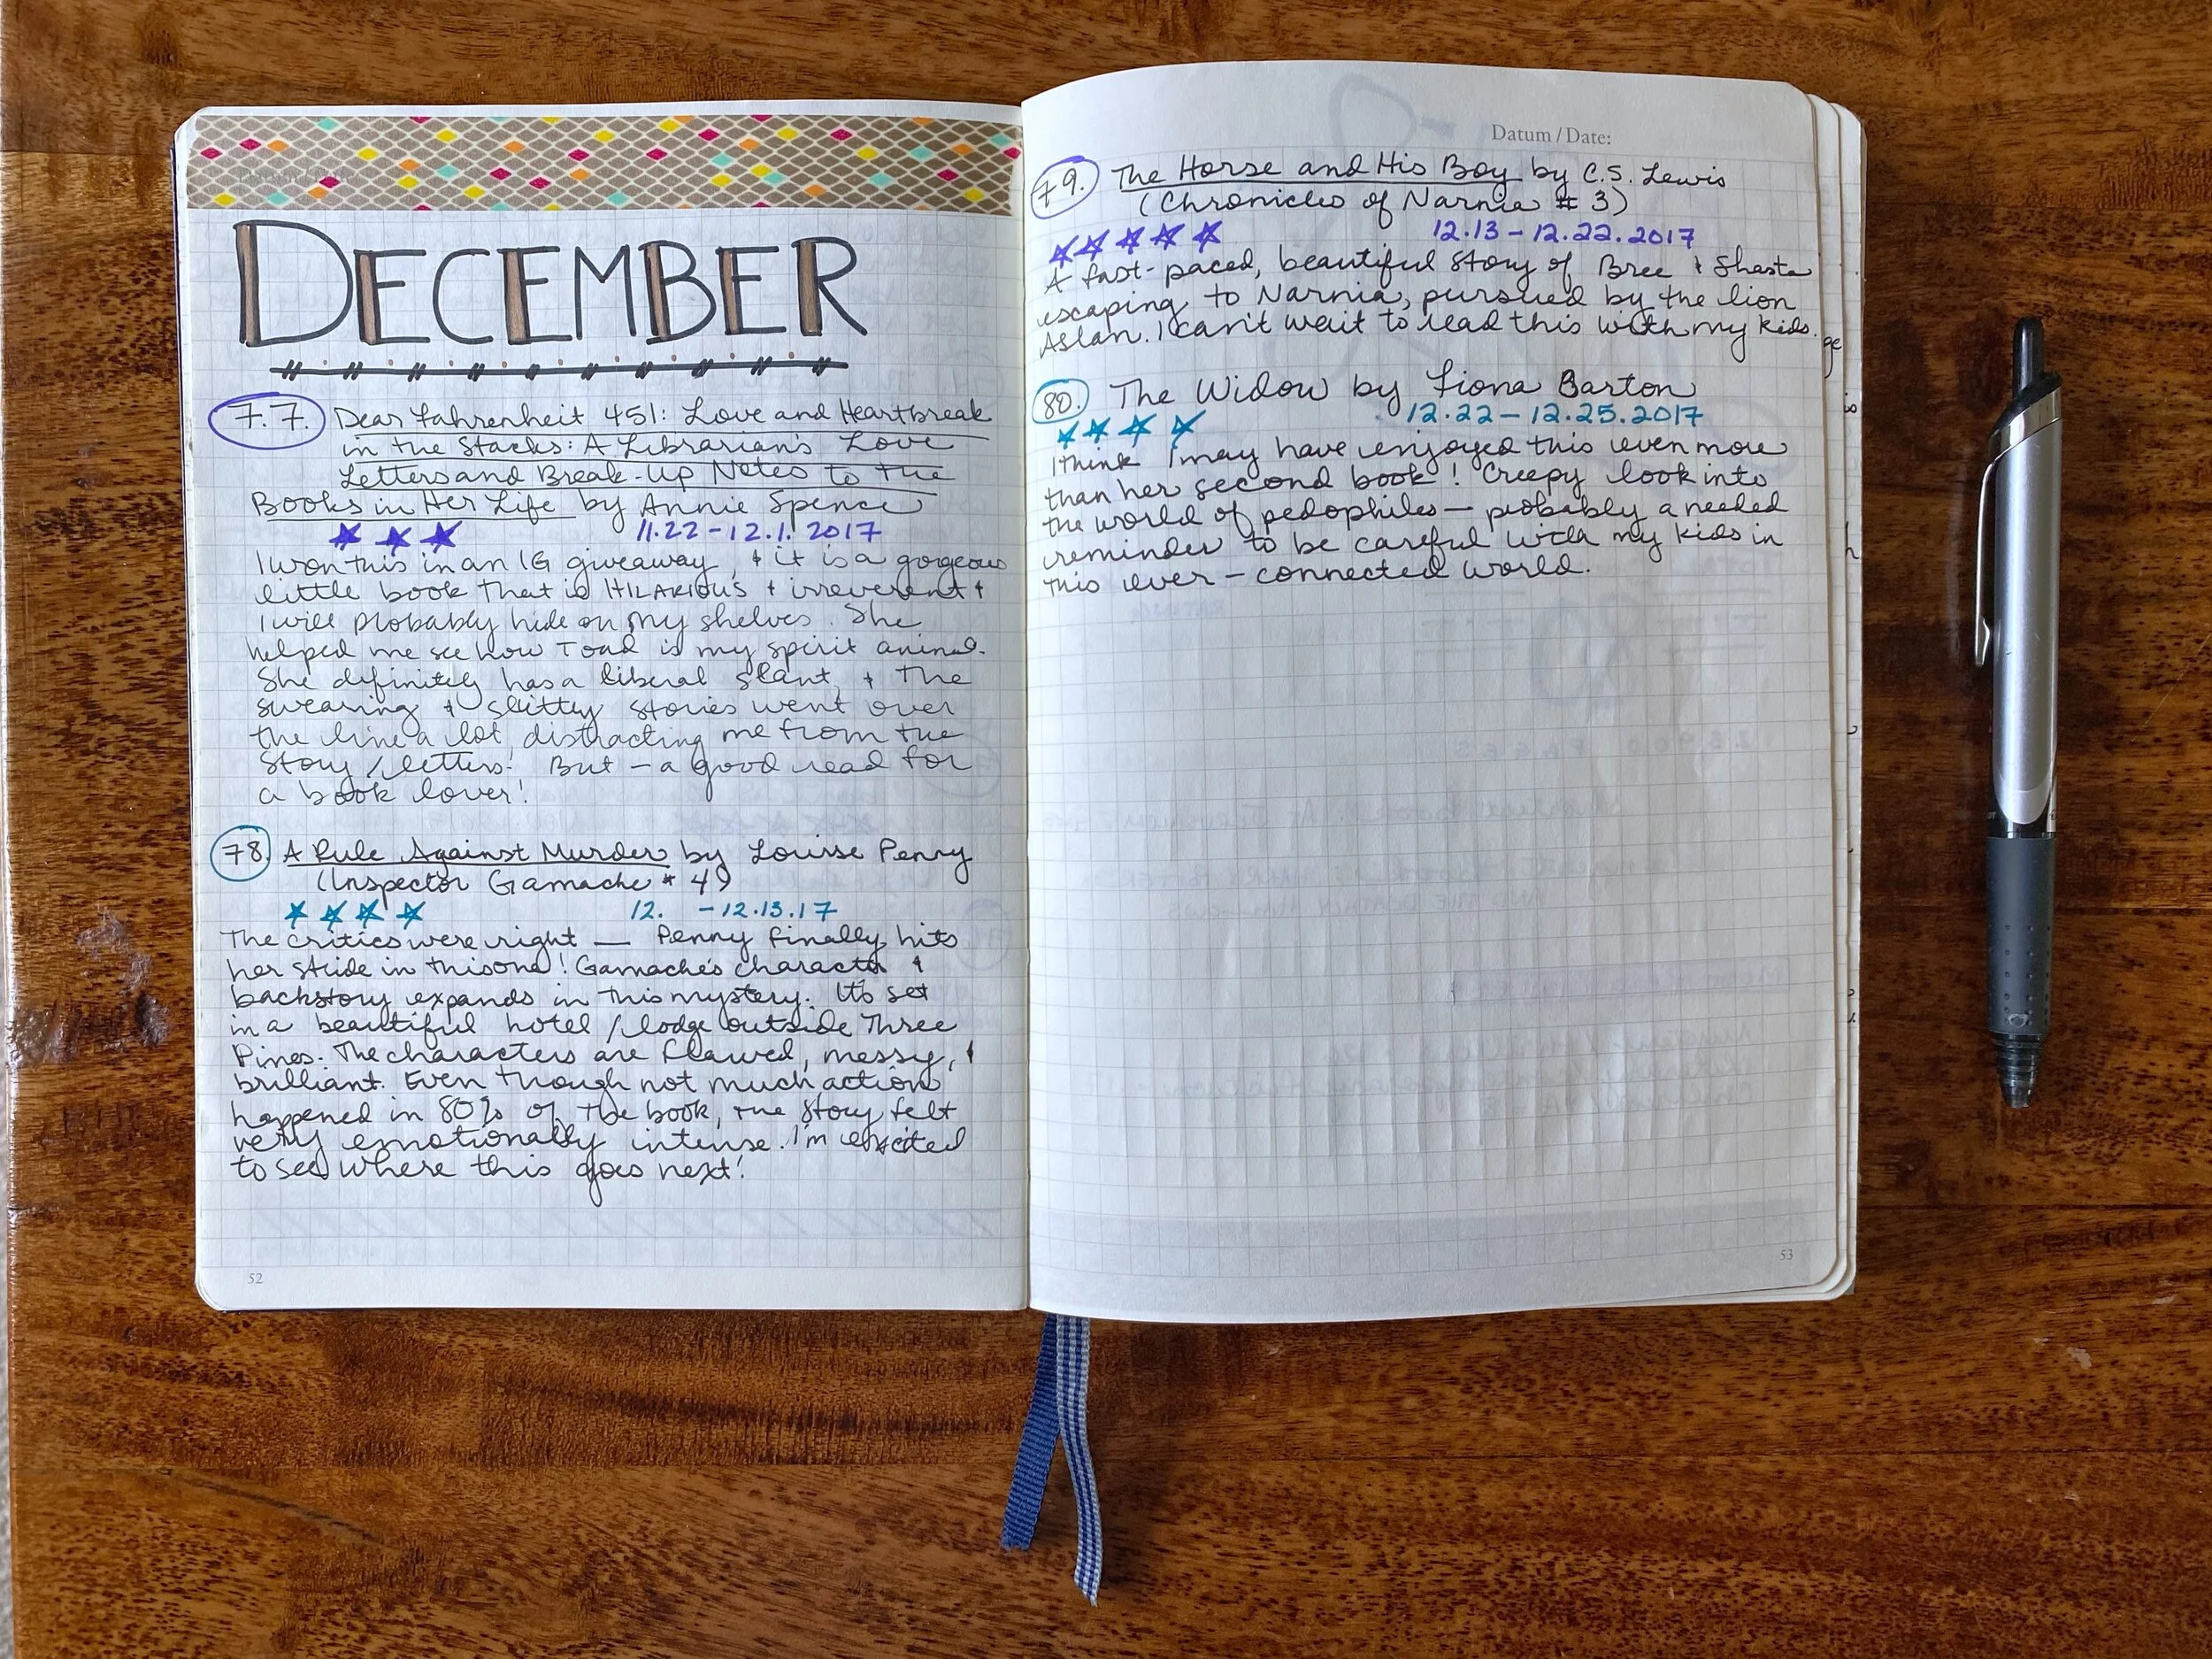 DECEMBER
77. Dear Fahrenheit 451: Love and Heartbreak
in the Stacks: A Librarian's Love
Letters and Break-Up Notes to the
Books in Her Life by Annie Spence
11.22-12.1.2017
I won this in an IG giveaway, & it is a gorgeous
little book that is HILARIOUS & irreverent &
I will probably hide on my shelves. She
helped me see how Toad is my spirit animal.
She definitely has a liberal slant, & the
swearing & slutty stories went over
the line a lot, distracting me from the
story/letters! But — a good read for
a book lover!
78. A Rule Against Murder by Louise Penny
(Inspector Gamache # 4)
12. -12.13.17
The critics were right — Penny finally hits
her stride in this one! Gamache's character &
backstory expands in this mystery. It's set
in a beautiful hotel/lodge outside Three
Pines. The characters are flawed, messy, &
brilliant. Even though not much action
happened in 80% of the book, the story felt
very emotionally intense. I'm excited
to see where this goes next!
52
Datum / Date:
79. The Horse and His Boy by C.S. Lewis
(Chronicles of Narnia # 3)
12.13-12.22.2017
A fast-paced, beautiful story of Bree & Shasta
escaping to Narnia, pursued by the lion
Aslan. I can't wait to read this with my kids.
80. The Widow by Fiona Barton
12.22-12.25.2017
I think I may have enjoyed this even more
than her second book! Creepy look into
the world of pedophiles — probably a needed
reminder to be careful with my kids in
this ever-connected world.
53